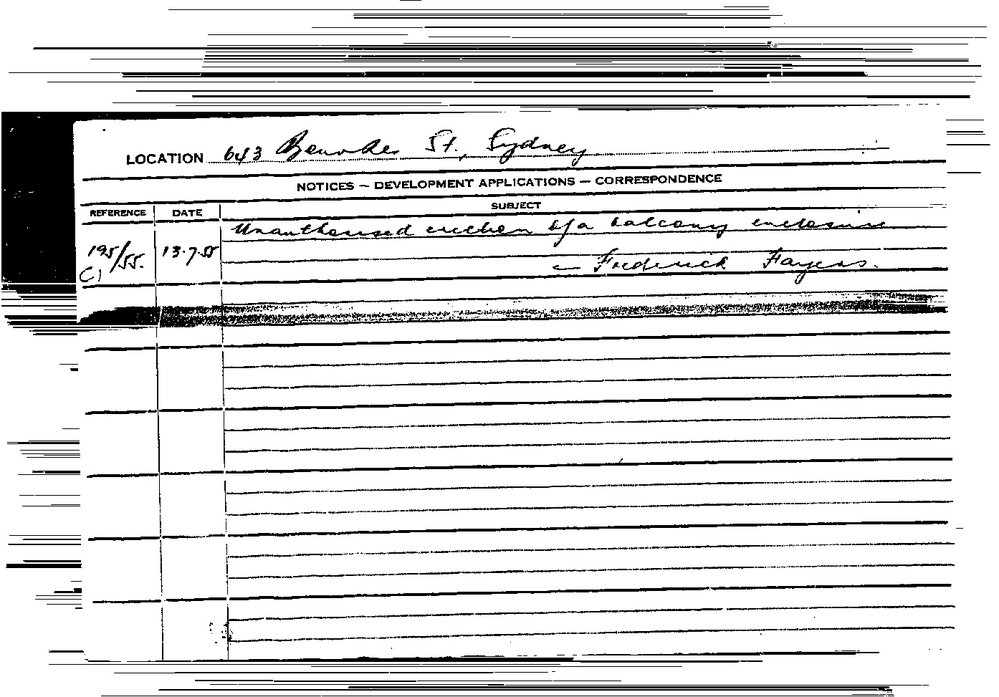 LOCATION 643 Bourke St., Sydney
NOTICES — DEVELOPMENT APPLICATIONS — CORRESPONDENCE
REFERENCE DATE SUBJECT
Unauthorised erection of a balcony enclosure
195/55. 13.7.55
C1 — Frederick Fayers.